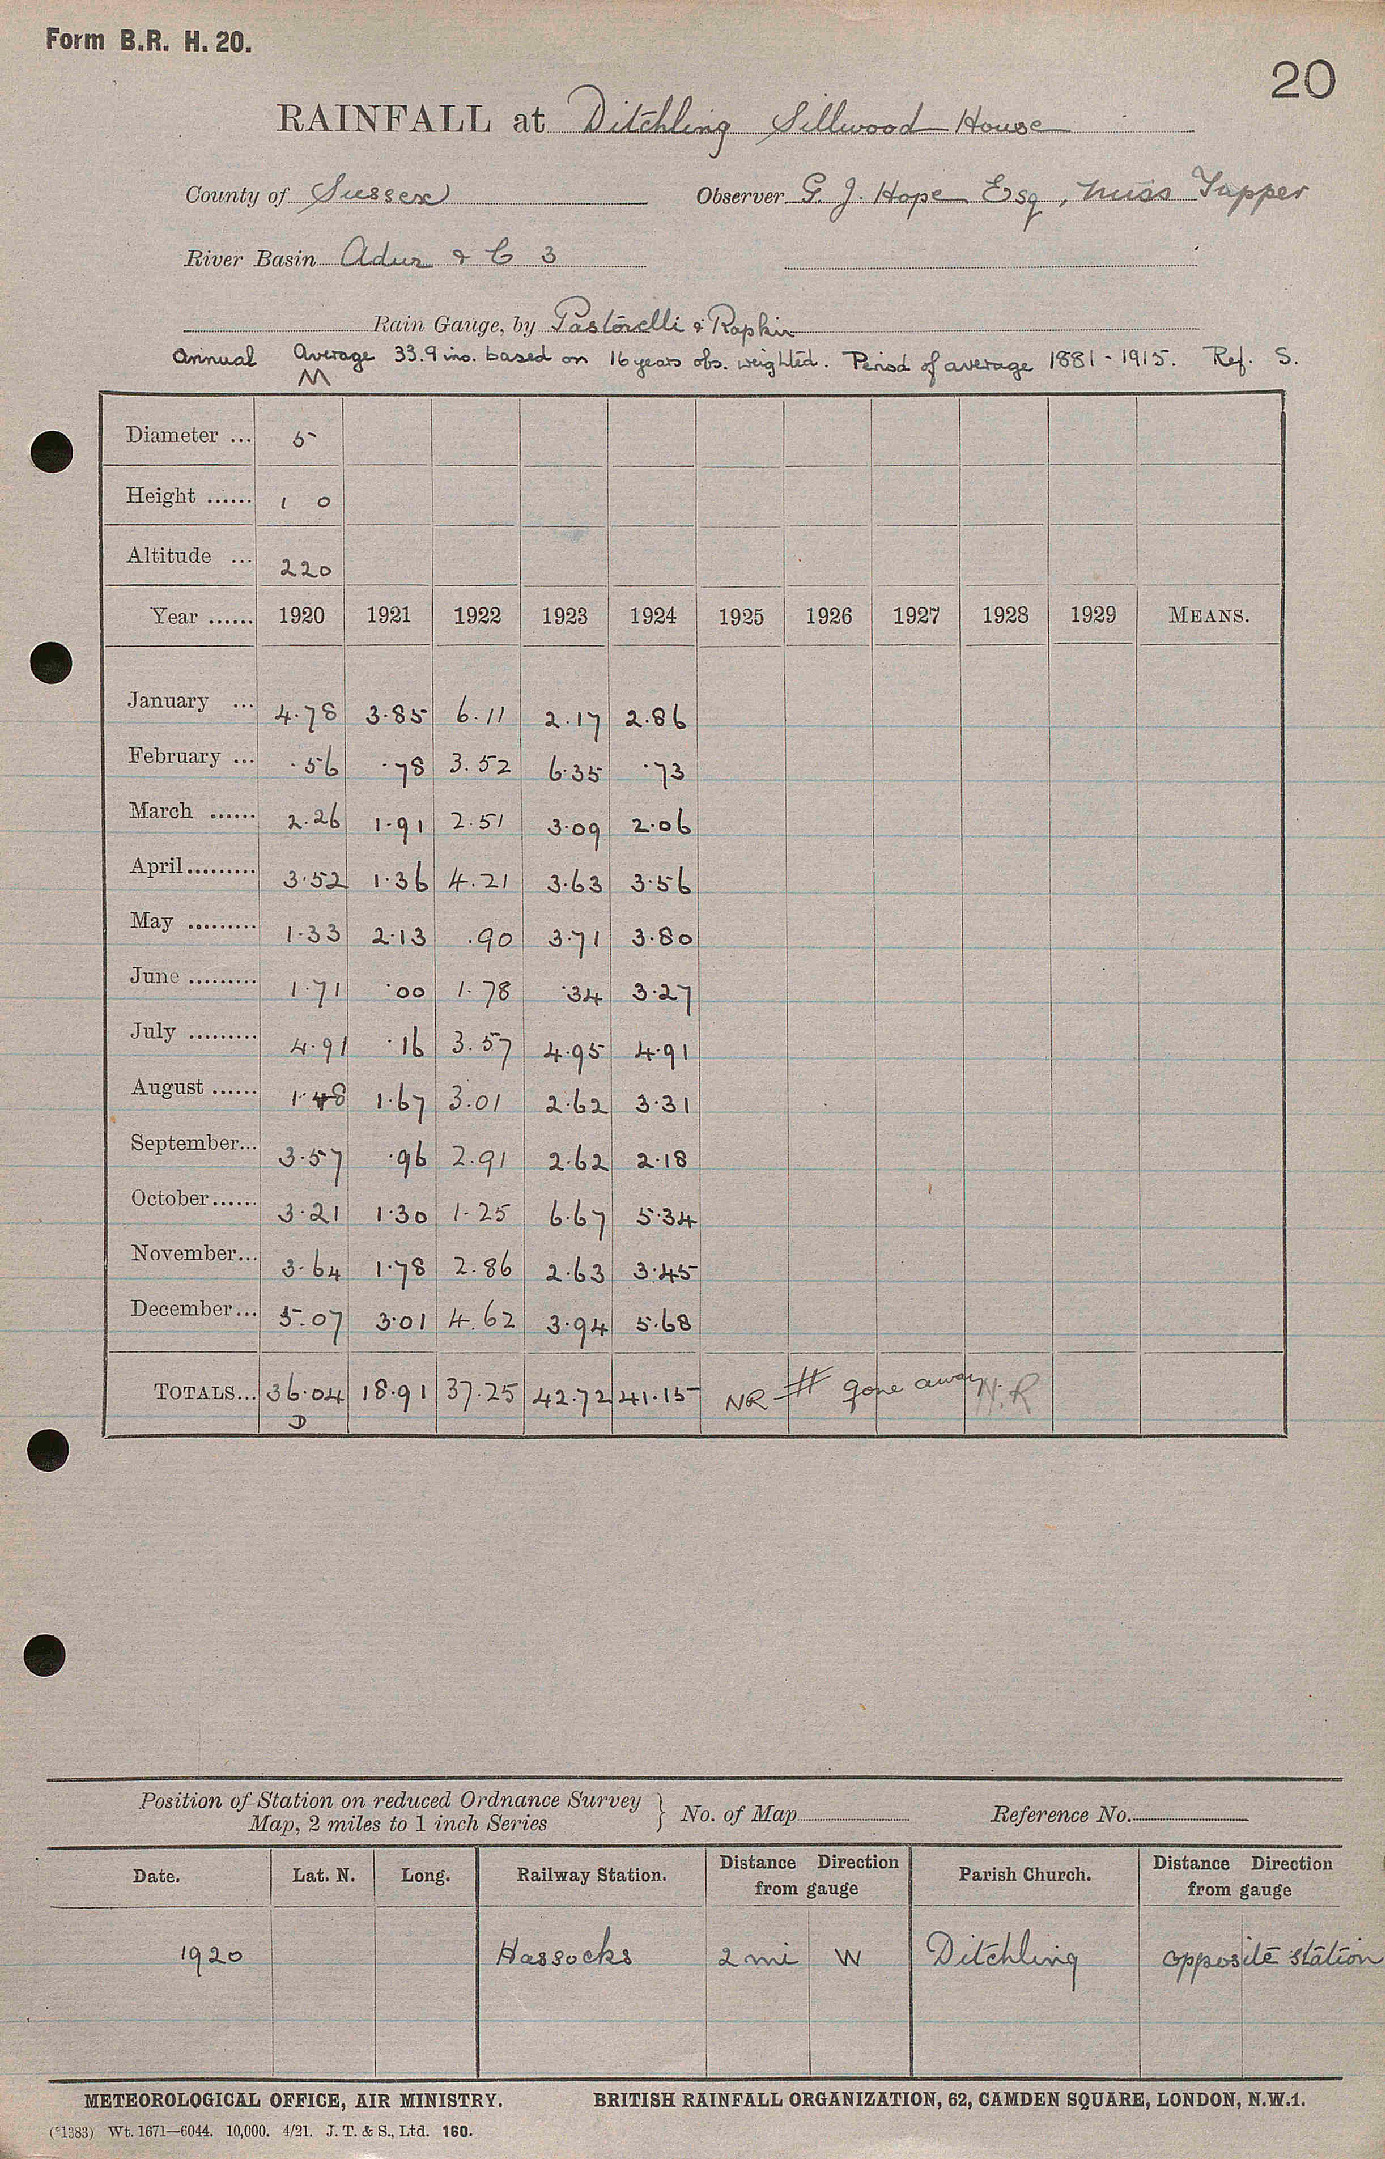 Form B.R. H. 20.
20
RAINFALL at Ditchling Sillwood House
County of Sussex Observer G. J. Hope Esq, Miss Tapper
River Basin Adur & C 3
Rain Gauge, by Pastorelli & Rapkin
Annual Average 33.9 ins. based on 16 years obs. weighted. Period of average 1881-1915. Ref. S.
M
Diameter ... 5
Height ...... 1 0
Altitude ... 220
Year ...... 1920 1921 1922 1923 1924 1925 1926 1927 1928 1929 MEANS.
January ... 4.78 3.85 6.11 2.17 2.86
February ... .56 .78 3.52 6.35 .73
March ...... 2.26 1.91 2.51 3.09 2.06
April ......... 3.52 1.36 4.21 3.63 3.56
May ......... 1.33 2.13 .90 3.71 3.80
June ......... 1.71 .00 1.78 .34 3.27
July ......... 4.91 .16 3.57 4.95 4.91
August ...... 1.48 1.67 3.01 2.62 3.31
September... 3.57 .96 2.91 2.62 2.18
October...... 3.21 1.30 1.25 6.67 5.34
November... 3.64 1.78 2.86 2.63 3.45
December... 5.07 3.01 4.62 3.94 5.68
TOTALS... 36.04 18.91 37.25 42.72 41.15 NR # gone away N.R
D
Position of Station on reduced Ordnance Survey
Map, 2 miles to 1 inch Series } No. of Map Reference No.
Date. Lat. N. Long. Railway Station. Distance Direction from gauge Parish Church. Distance Direction from gauge
1920 Hassocks 2 mi W Ditchling opposite station
METEOROLOGICAL OFFICE, AIR MINISTRY. BRITISH RAINFALL ORGANIZATION, 62, CAMDEN SQUARE, LONDON, N.W.1.
Wt. 1671—6044. 10,000. 4/21. J. T. & S., Ltd. 160.